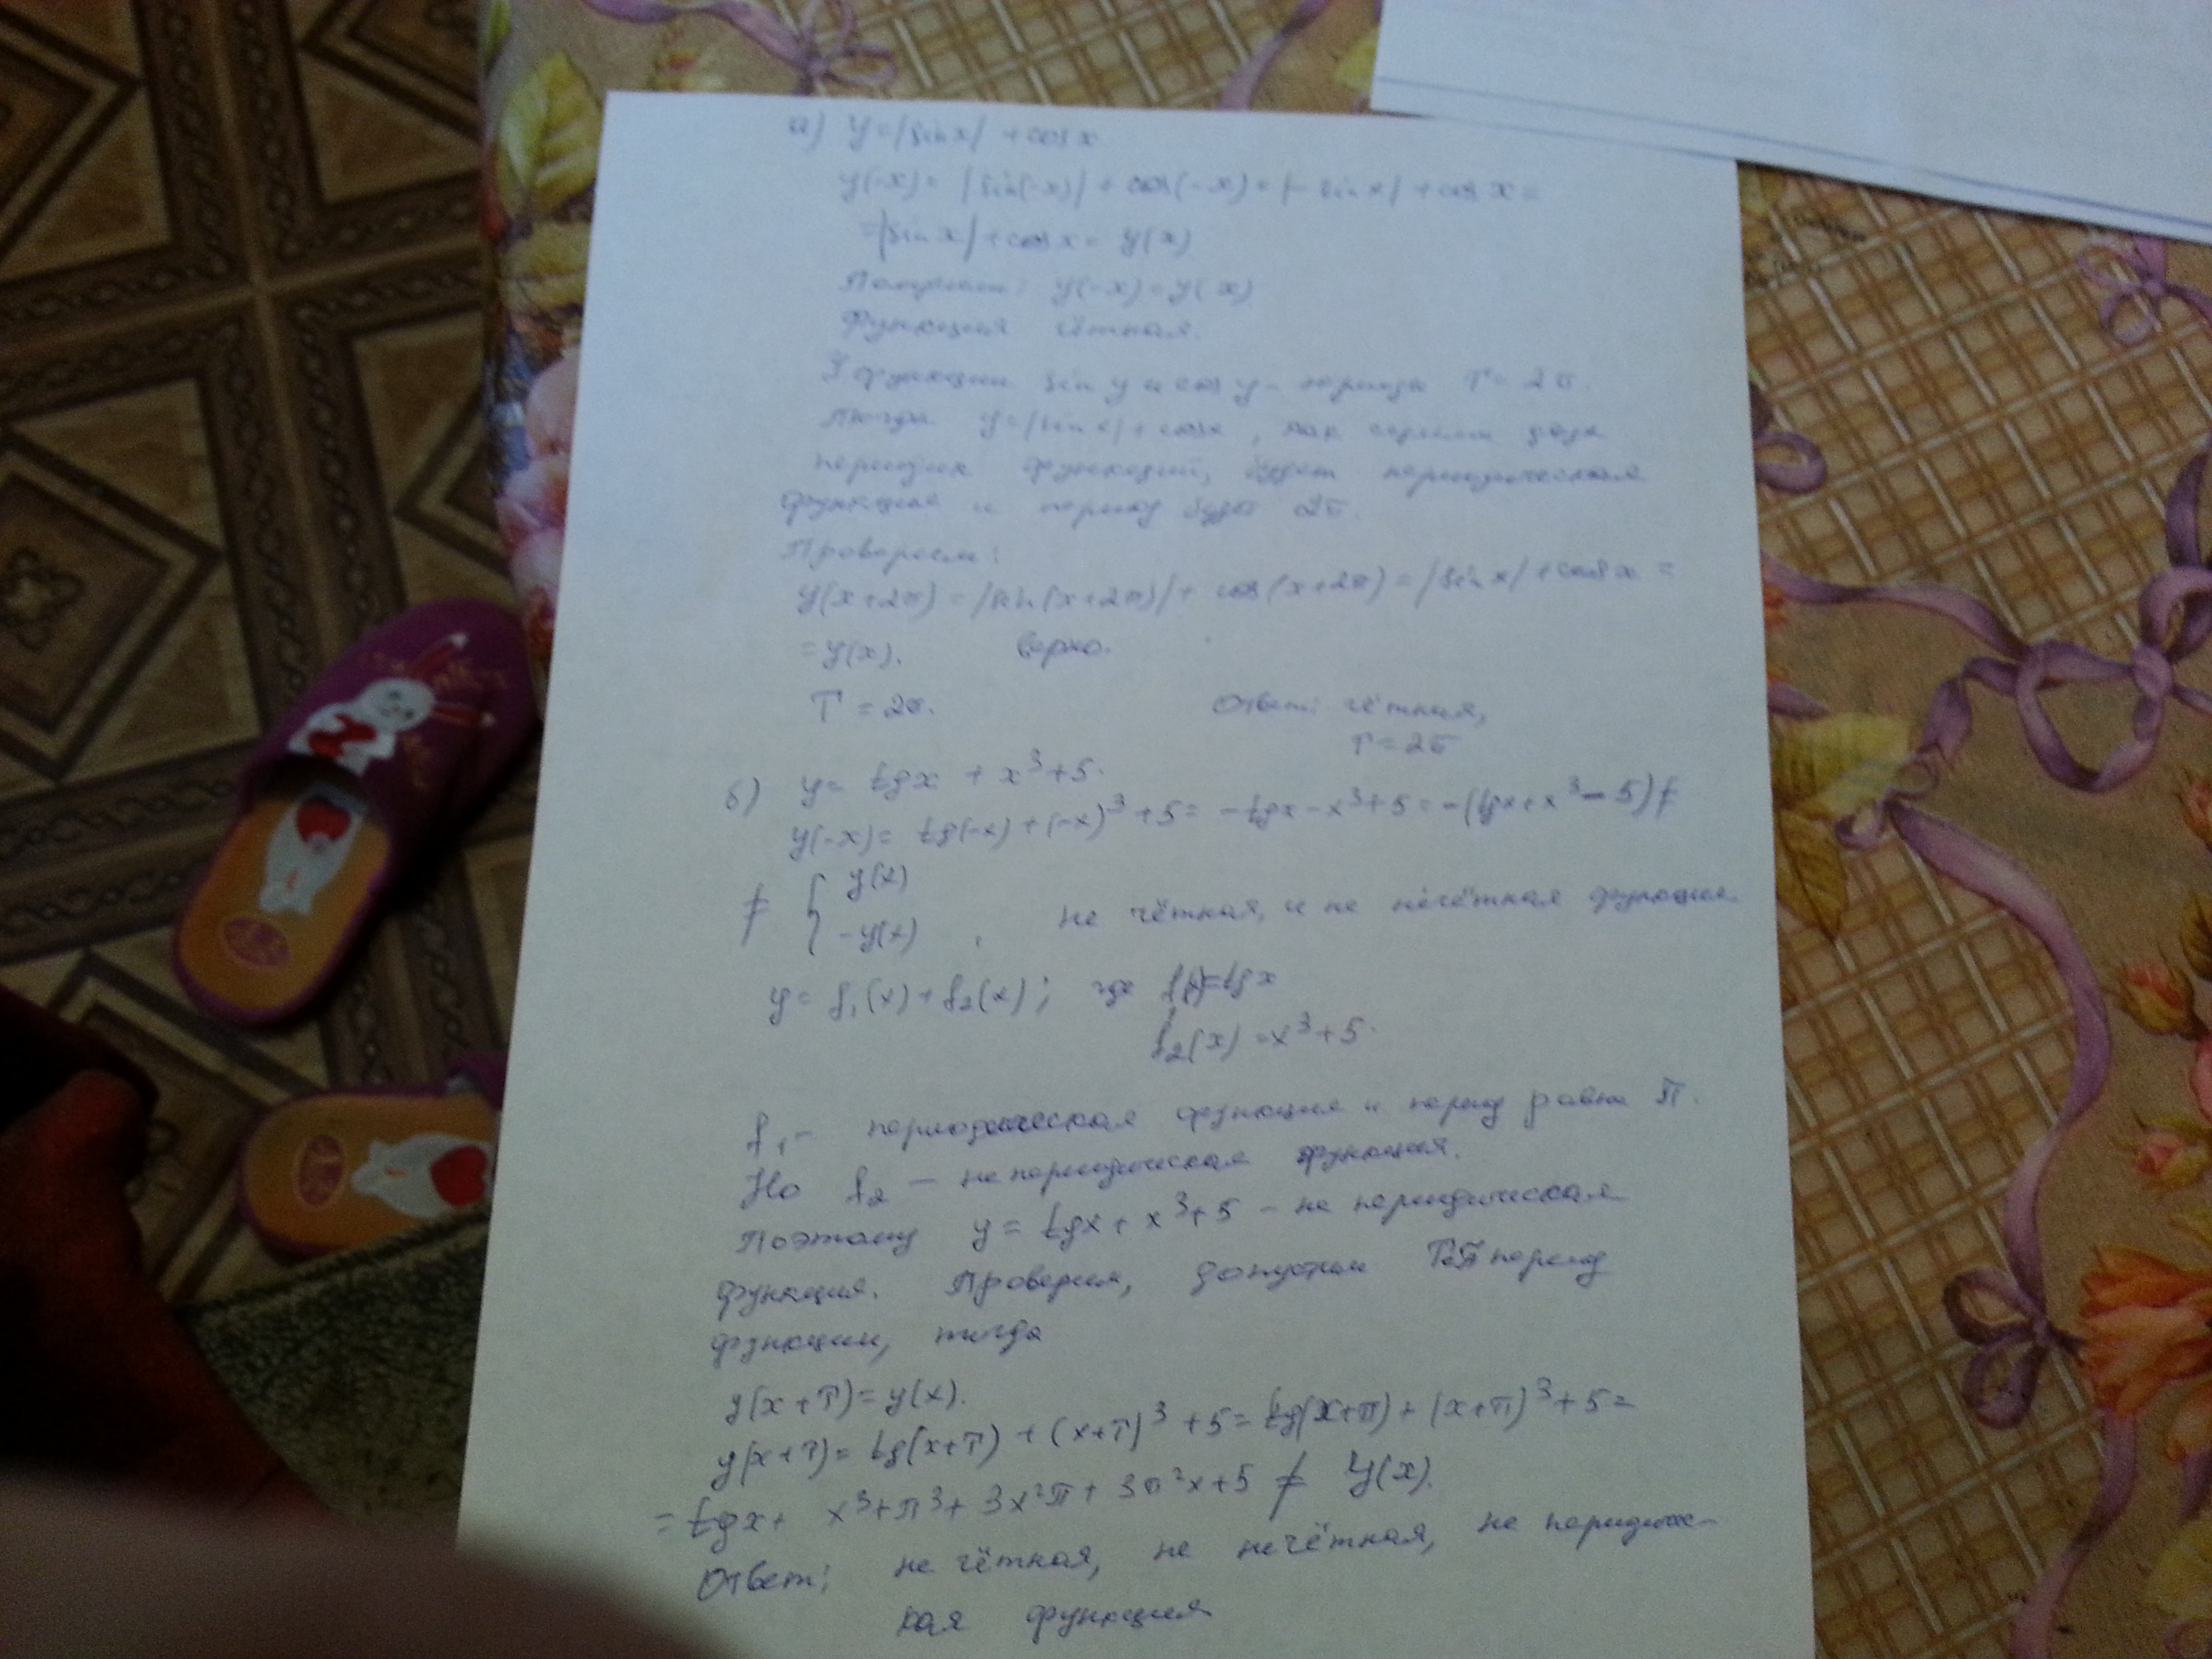 а) y=|sin x| + cos x
y(-x) = |sin(-x)| + cos(-x) = |-sin x| + cos x =
=|sin x| + cos x = y(x)
Получаем: y(-x) = y(x)
Функция чётная.
У функции sin y и cos y - периоды T = 2π.
Тогда y=|sin x| + cos x, как сумма двух
периодик функций, будет периодическая
функция и период будет 2π.
Проверяем:
y(x+2π) = |sin(x+2π)| + cos(x+2π) = |sin x| + cos x =
= y(x). верно.
T = 2π. Ответ: чётная,
T = 2π
б) y = tgx + x³+5.
y(-x) = tg(-x) + (-x)³ + 5 = -tgx - x³ + 5 = -(tgx + x³ - 5) ≠
≠ { y(x)
-y(x) , не чётная, и не нечётная функция.
y = f₁(x) + f₂(x); где f₁(x)=tgx
f₂(x) = x³+5.
f₁ - периодическая функция и период равен π.
Но f₂ - не периодическая функция.
Поэтому y = tgx + x³+5 - не периодическая
функция. Проверим, допустим T=π период
функции, тогда
y(x+T) = y(x).
y(x+T) = tg(x+T) + (x+T)³ + 5 = tg(x+π) + (x+π)³ + 5 =
= tgx + x³+π³+ 3x²π + 3π²x+5 ≠ y(x).
Ответ: не чётная, не нечётная, не периодичес-
кая функция